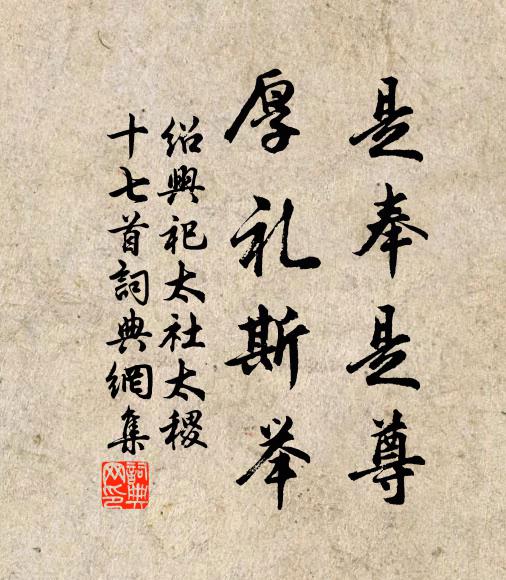 是奉是尊
厚礼斯举
绍興祀太社太稷
十七首詞典網集
詞典网印